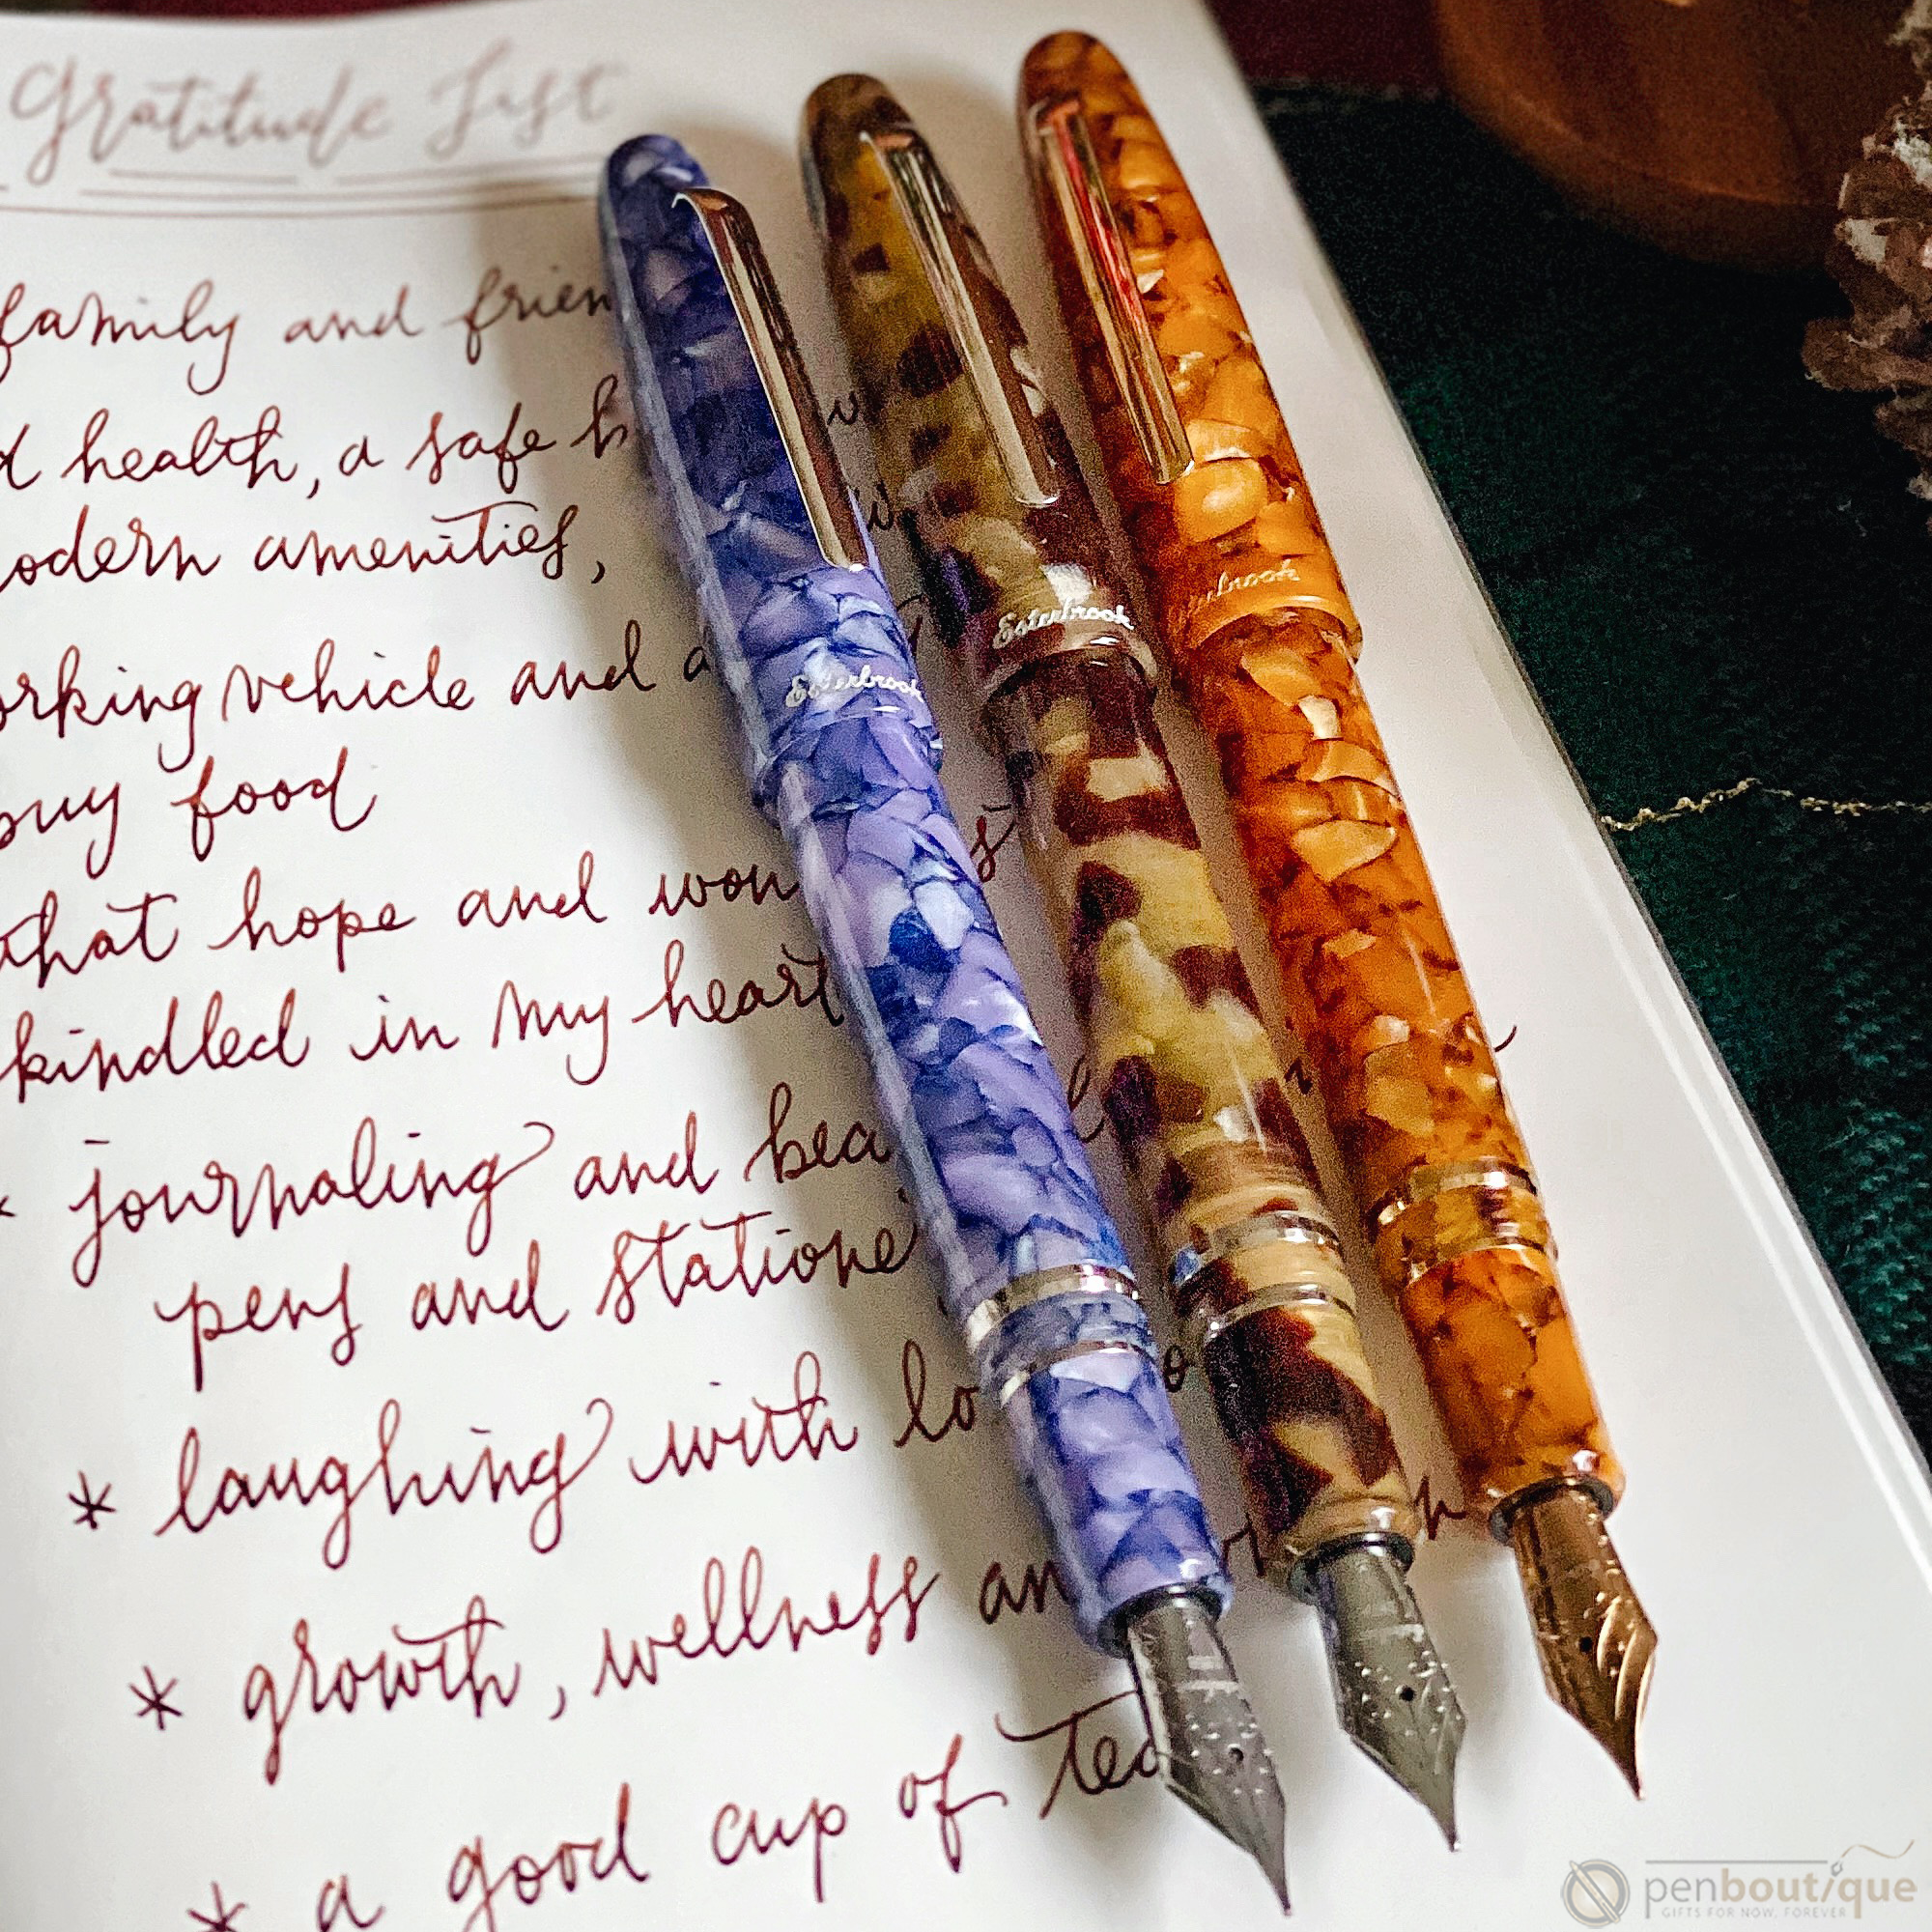 Gratitude List
family and frien
health, a safe h
modern amenities,
working vehicle and a
buy food
that hope and won s
kindled in my heart
* journaling and bea
pens and statione
* laughing with lo
* growth, wellness an
* a good cup of tea
Esterbrook
Esterbrook
Esterbrook
penboutique
GIFTS FOR NOW, FOREVER